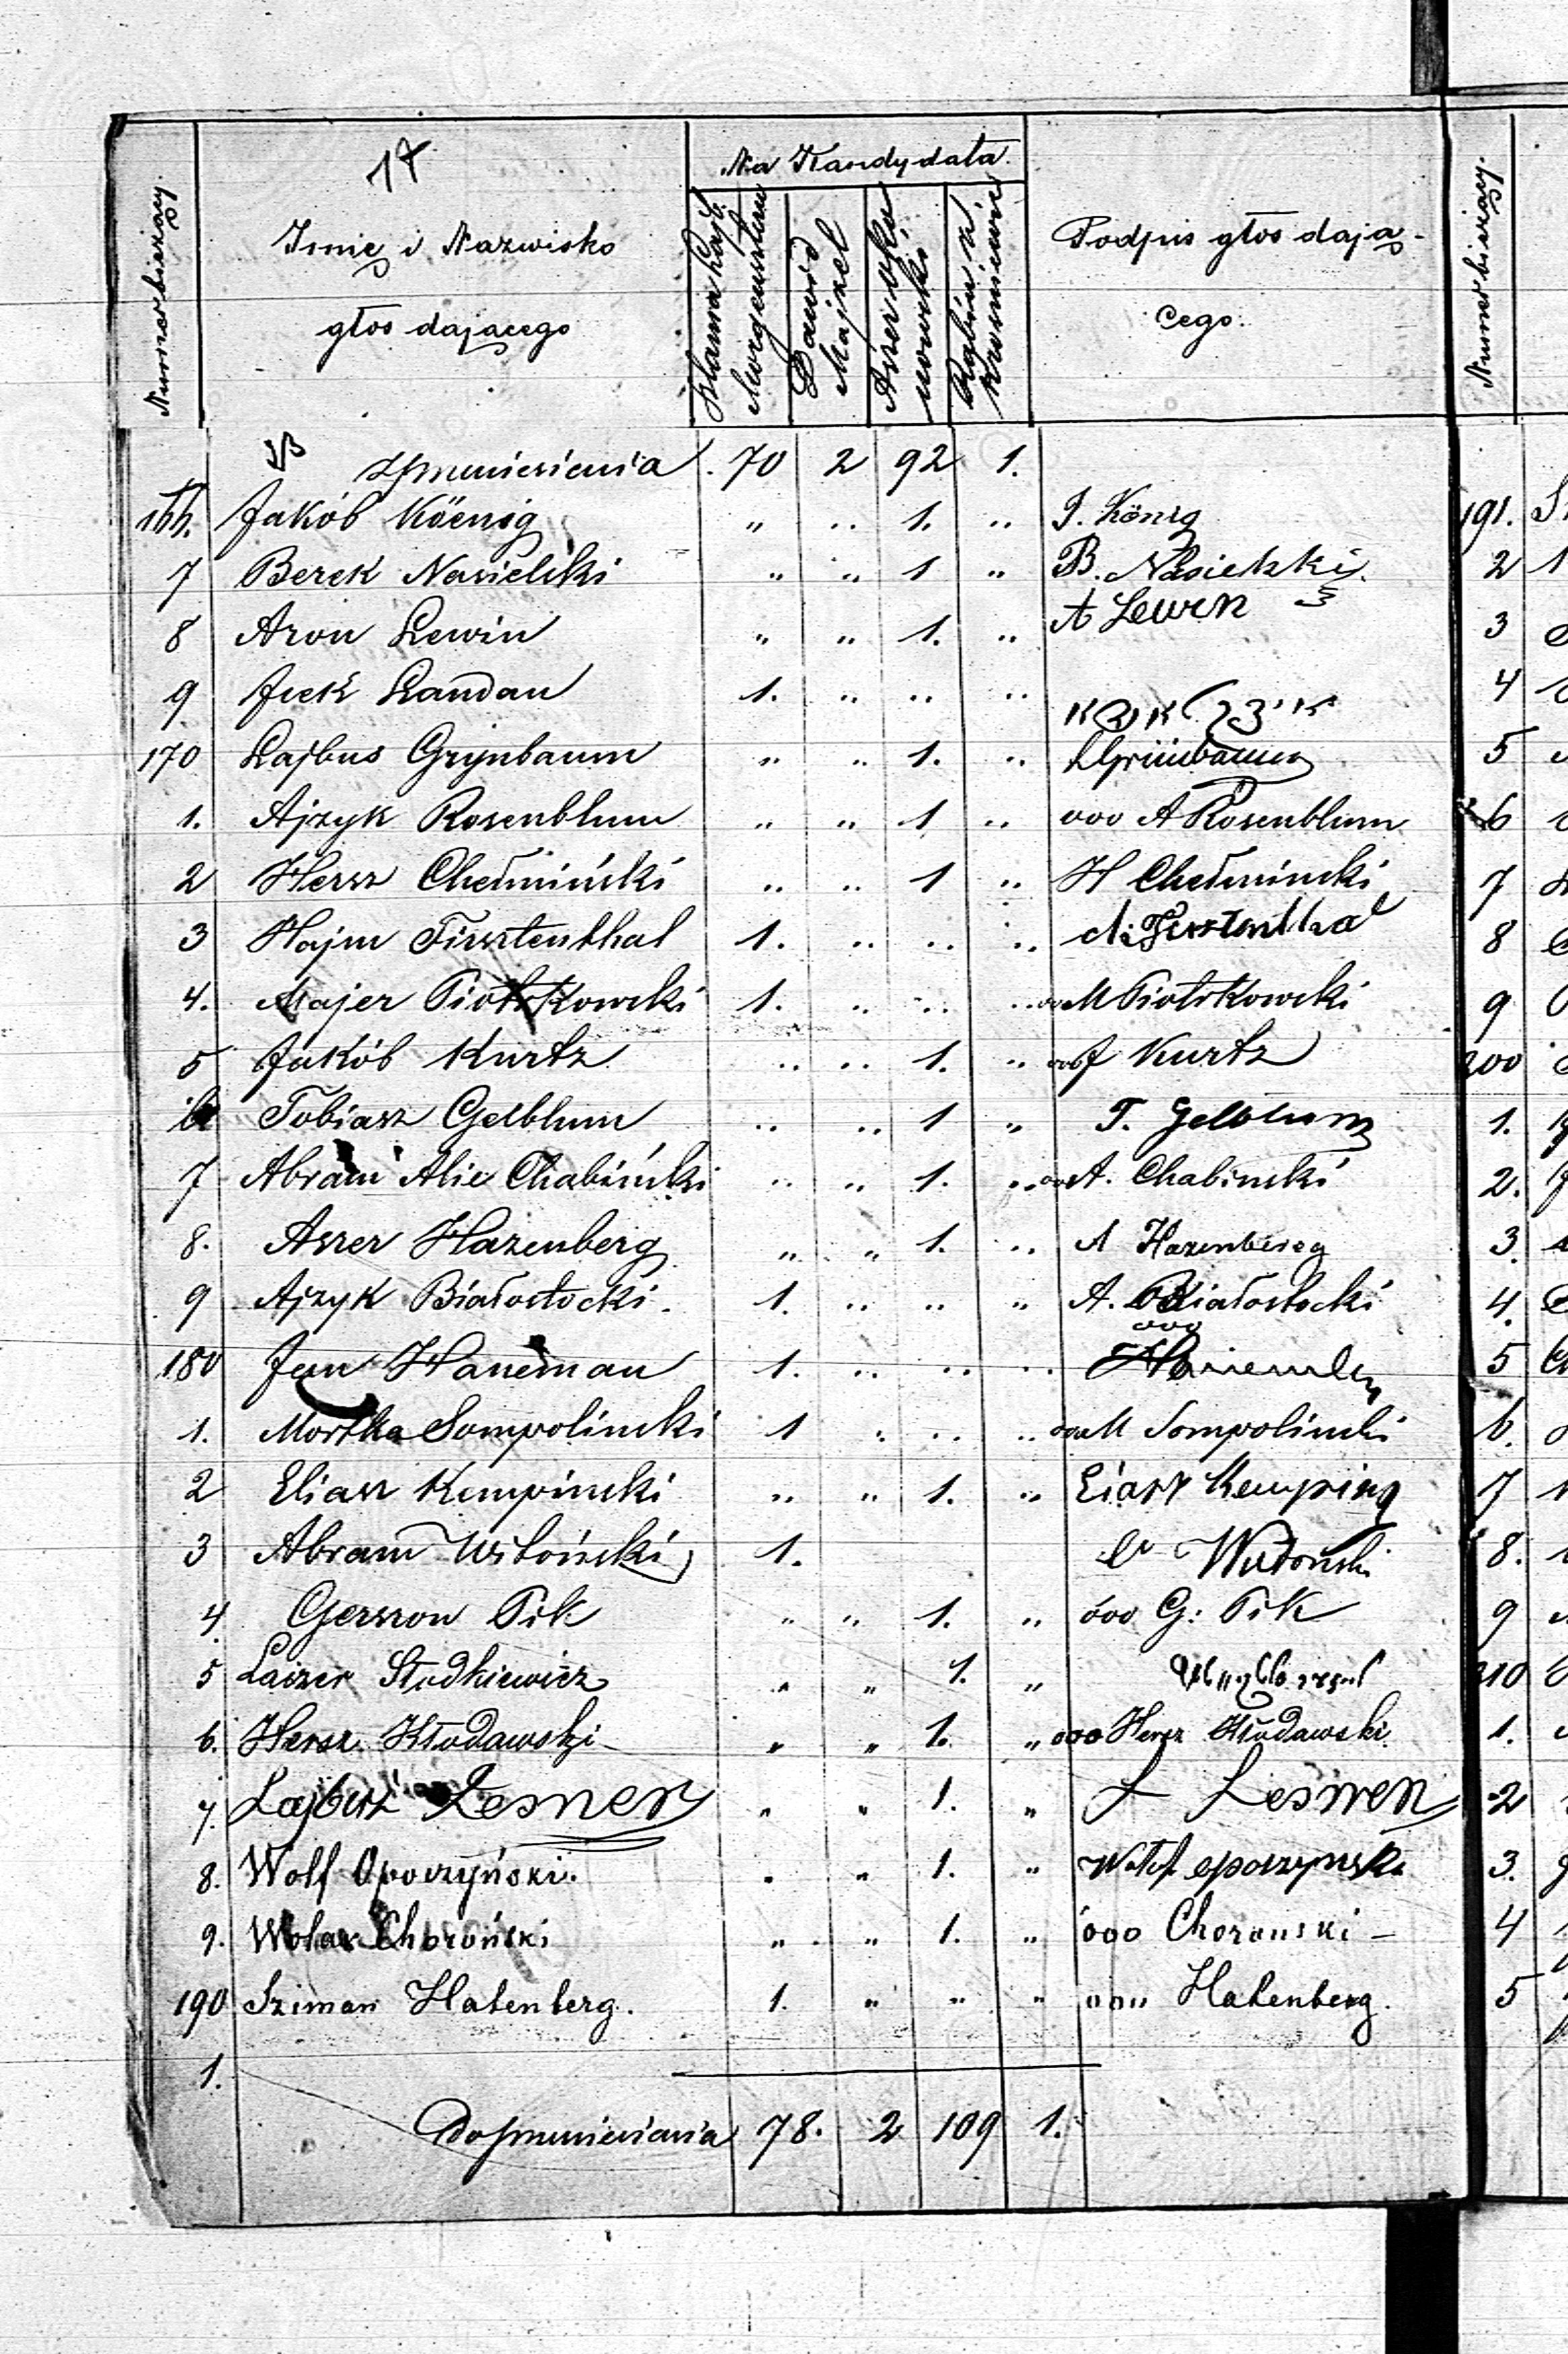 17
Numer bieżący.
Imię i Nazwisko
głos dającego
Na Kandydata.
Morgensztern
Dawid Majzel
Rabin z
Podpis głos dają-
cego.
Numer bieżący.
Z przeniesienia 70 2 92 1.
166. Jakób Köenig „ „ 1. „ J. König 191.
7 Berek Nasielski „ „ 1 „ B. Nasielski 2
8 Aron Lewin „ „ 1. „ A Lewin 3
9 Icek Landau 1. „ „ „ 4
170 Lajbus Grynbaum „ „ 1. „ L Grünbaum 5
1. Ajzyk Rosenblum „ „ 1 „ ooo A Rosenblum 6
2 Hersz Chełmiński „ „ 1 „ H Chełmiński 7
3 Hajm Firsztenthal 1. „ „ „ 8
4. Majer Piotrkowski 1. „ „ „ ooo M Piotrkowski 9
5 Jakób Kurtz „ „ 1. „ ooo J Kurtz 200
6 Tobiasz Gelblum „ „ 1 „ T. Gelblum 1.
7 Abram Alie Chabiński „ „ 1. „ ooo A. Chabinski 2.
8. Aszer Hazenberg „ „ 1. „ A Hazenberg 3.
9 Ajzyk Białostocki 1. „ „ „ A. Białostocki 4.
ooo
180 Haneman 1. „ „ „ 5
1. Mortka Sompolinski 1 „ „ „ ooo M Sompolinski 6.
2 Eliasz Kempinski „ „ 1. „ Eiasz Kemping 7
3 Abram Witoński 1. Widonski 8.
4. Gerszon Pik „ „ 1. „ ooo G: Pik 9
5 Laizer Słodkiewicz „ „ 1. „ 210
6. Hersz Kłodawski „ „ 1. „ ooo Hersz Kłodawski 1.
7. Lajbusz Lesner „ „ 1. „ L Lesner 2
8. Wolf Opoczyński. „ „ 1. „ Wolf opoczynski 3.
9. Choroński „ „ 1. „ ooo Choronski – 4
190 Sziman Hatenberg. 1. „ „ „ ooo Hatenberg. 5
1.
Do przeniesienia 78. 2 109 1.